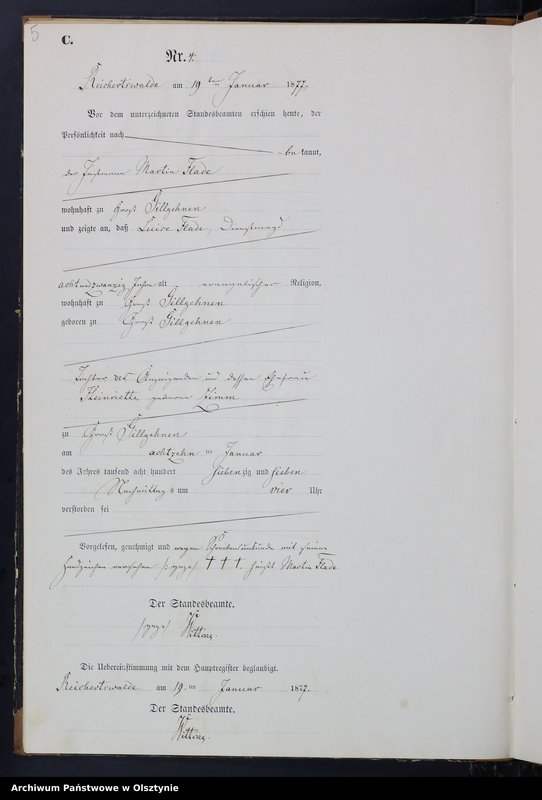 5
C.
Nr. 4.
Reichertswalde am 19ten Januar 1877.
Vor dem unterzeichneten Standesbeamten erschien heute, der
Persönlichkeit nach
be kannt,
der Instmann Martin Flade
wohnhaft zu Groß Gillgehnen
und zeigte an, daß Luise Flade, Dienstmagd
achtundzwanzig Jahre alt evangelischer Religion,
wohnhaft zu Groß Gillgehnen
geboren zu Groß Gillgehnen
Tochter des Anzeigenden und dessen Ehefrau
Henriette, geborne Timm
zu Groß Gillgehnen
am achtzehn ten Januar
des Jahres tausend acht hundert siebenzig und sieben
Nachmittags um vier Uhr
verstorben sei
Vorgelesen, genehmigt und wegen Schreibensunkunde mit seinem
Handzeichen versehen /:gez:/ † † † heißt Martin Flade
Der Standesbeamte.
/gez:/
Die Uebereinstimmung mit dem Hauptregister beglaubigt.
Reichertswalde am 19. ten Januar 1877.
Der Standesbeamte.
Archiwum Państwowe w Olsztynie